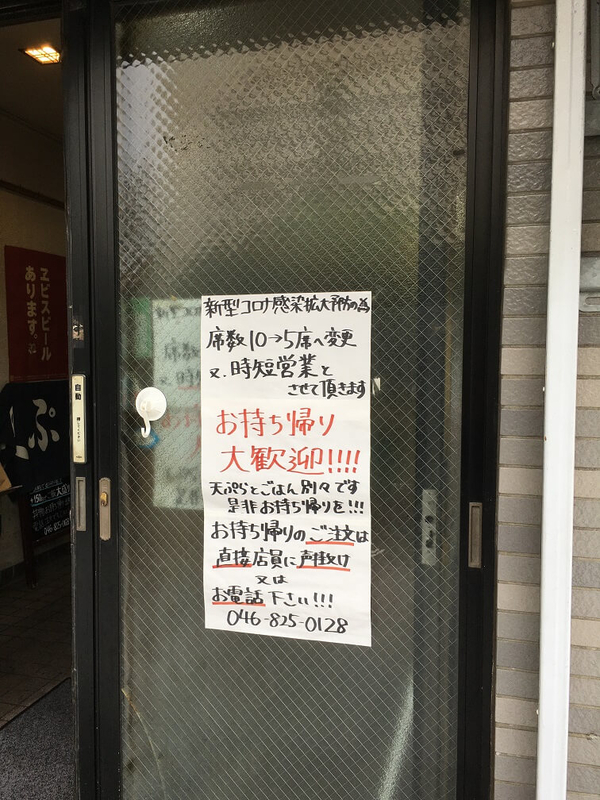 新型コロナ感染拡大予防の為
席数10→5席へ変更
又、時短営業と
させて頂きます
お持ち帰り
大歓迎!!!!
天ぷらとごはん別々です
是非お持ち帰りを!!!
お持ち帰りのご注文は
直接店員に声掛け
又は
お電話下さい!!!
046-825-0128
ヱビスビール
あります。
自動
ぷ